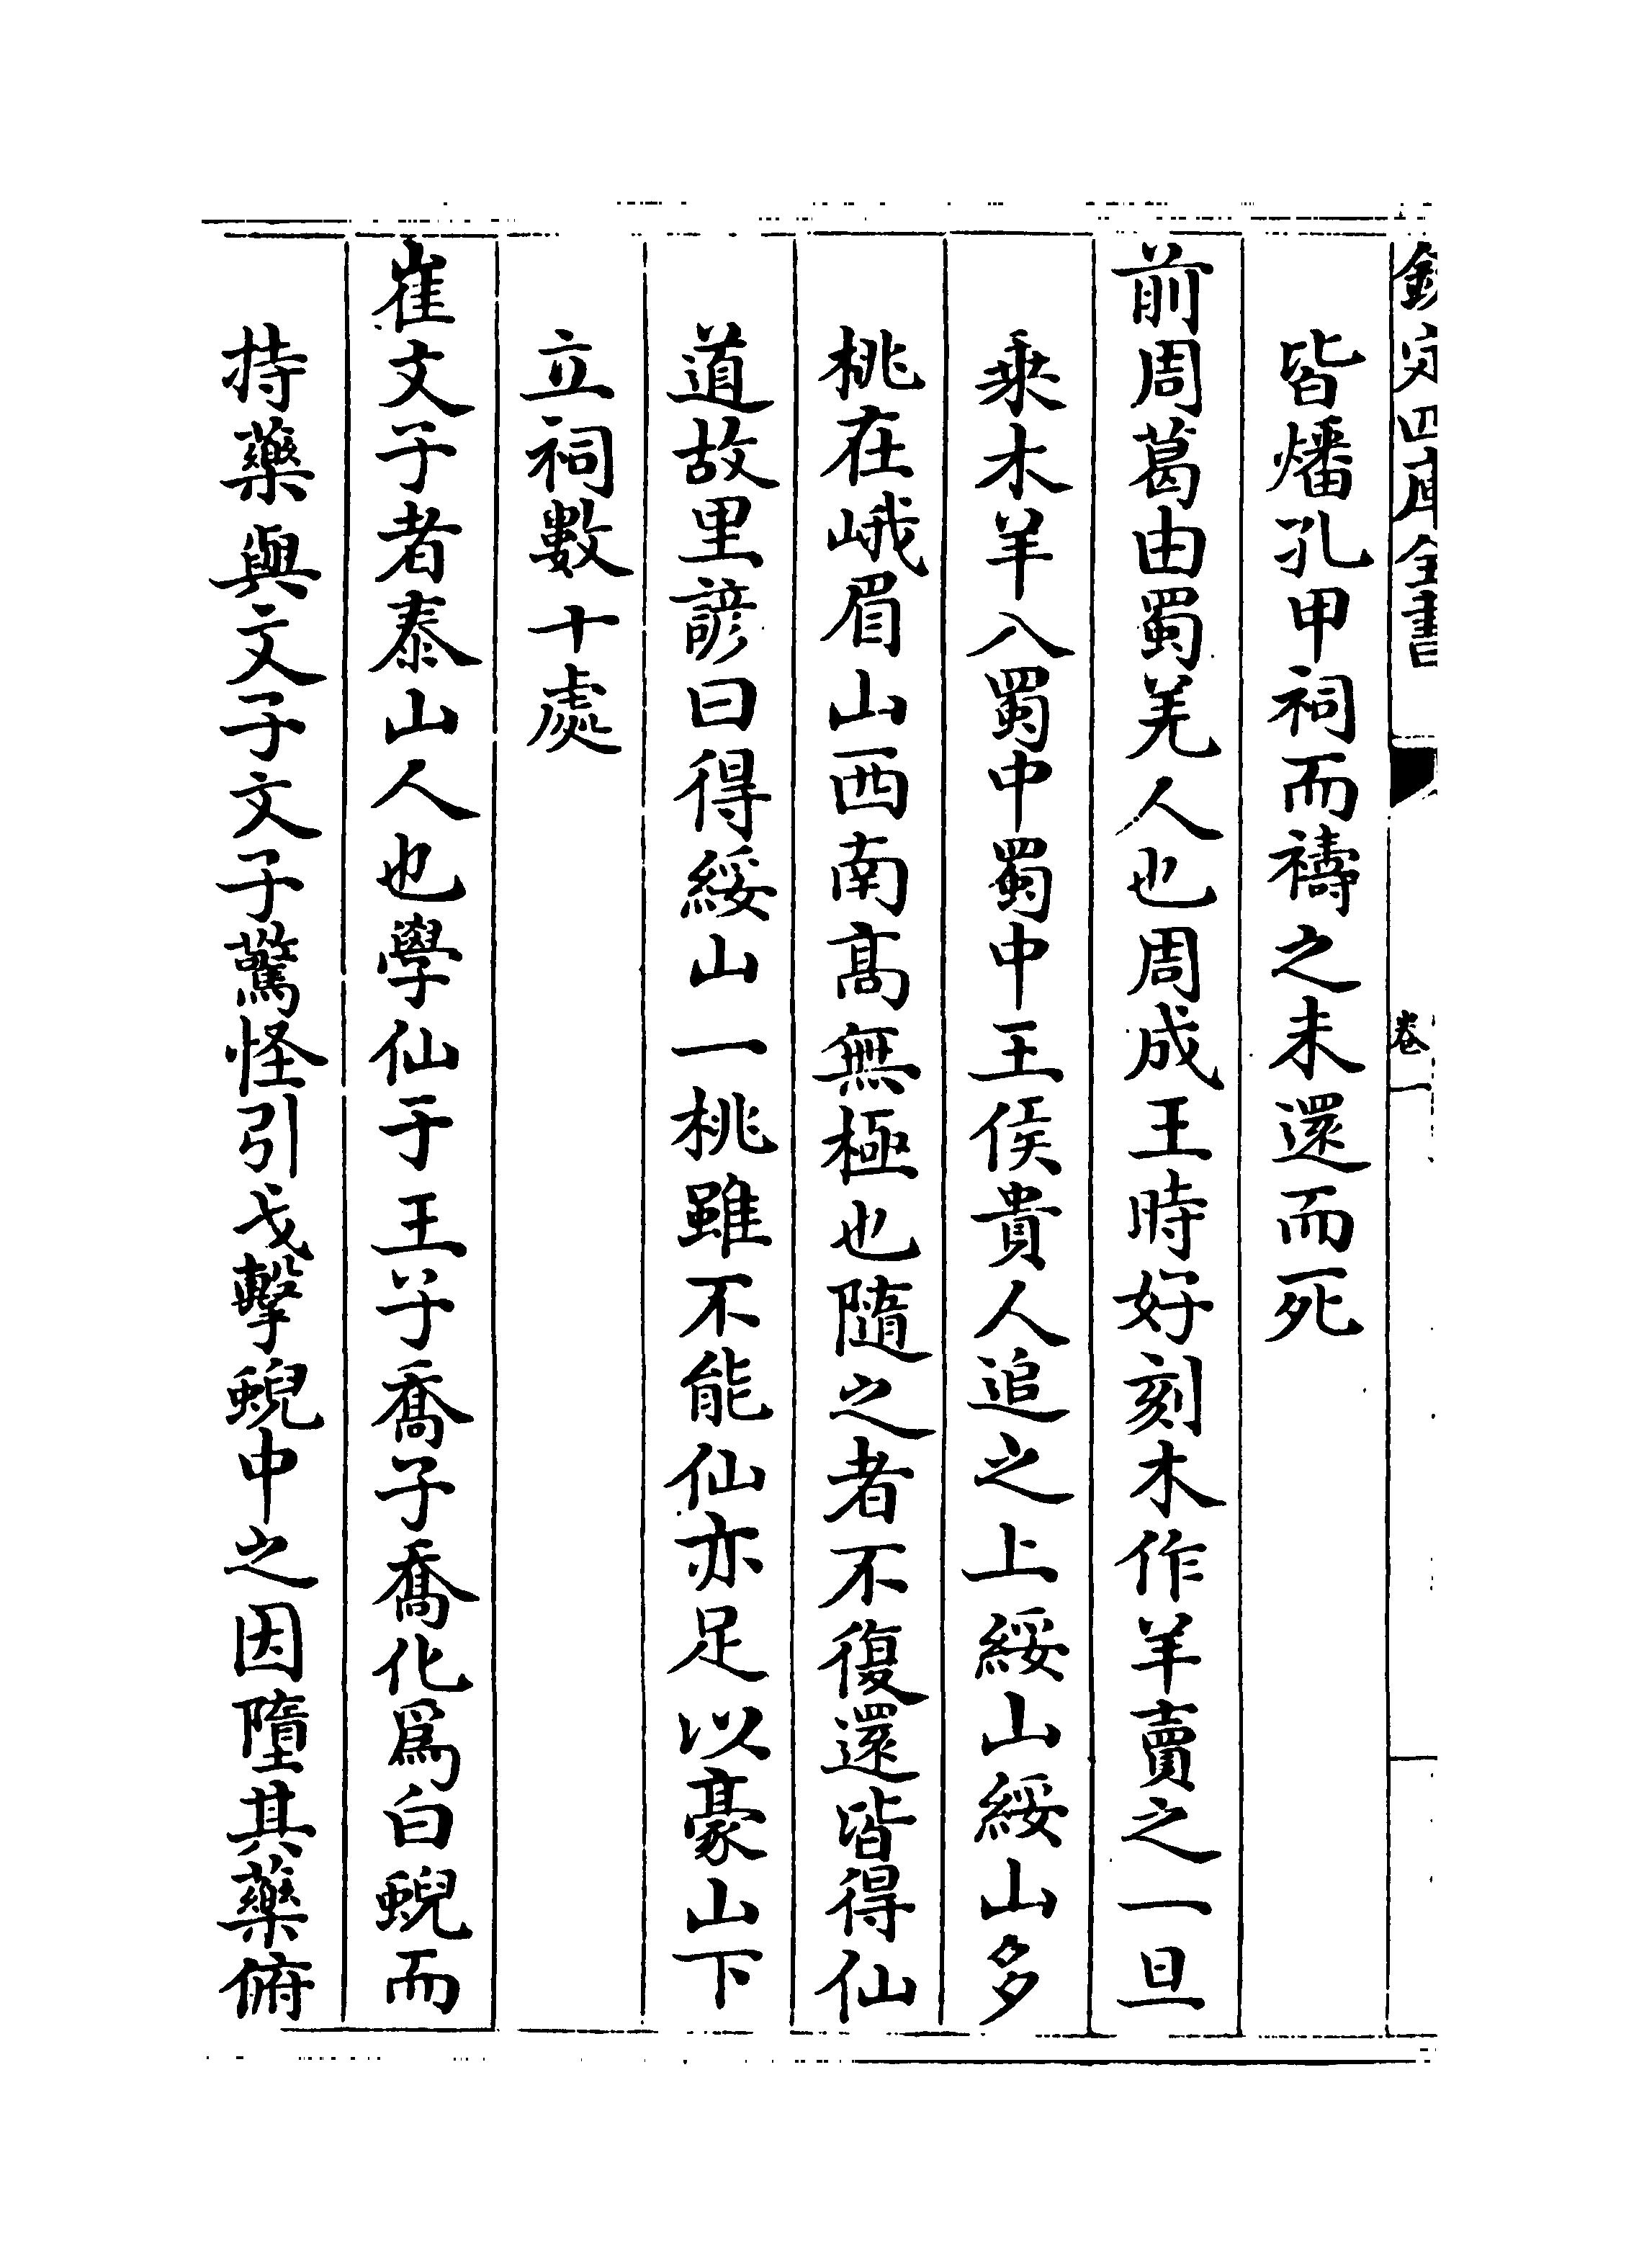 欽定四庫全書
卷一
皆燔孔甲祠而禱之未還而死
前周葛由蜀羌人也周成王時好刻木作羊賣之一旦
乗木羊入蜀中蜀中王侯貴人追之上綏山綏山多
桃在峨眉山西南髙無極也隨之者不復還皆得仙
道故里諺曰得綏山一桃雖不能仙亦足以豪山下
立祠數十處
崔文子者泰山人也學仙于王子喬子喬化為白蜺而
持藥與文子文子驚怪引戈擊蜺中之因墮其藥俯